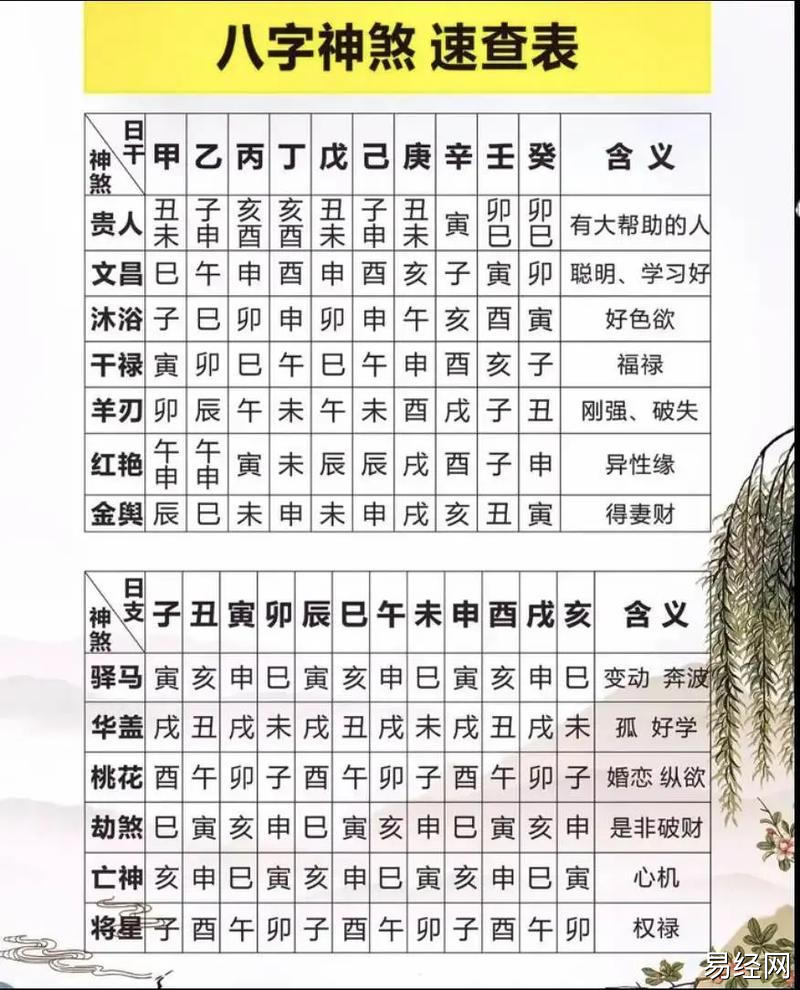 八字神煞 速查表
日干 神煞 甲 乙 丙 丁 戊 己 庚 辛 壬 癸 含义
贵人 丑未 子申 亥酉 亥酉 丑未 子申 丑未 寅 卯巳 卯巳 有大帮助的人
文昌 巳 午 申 酉 申 酉 亥 子 寅 卯 聪明、学习好
沐浴 子 巳 卯 申 卯 申 午 亥 酉 寅 好色欲
干禄 寅 卯 巳 午 巳 午 申 酉 亥 子 福禄
羊刃 卯 辰 午 未 午 未 酉 戌 子 丑 刚强、破失
红艳 午申 午申 寅 未 辰 辰 戌 酉 子 申 异性缘
金舆 辰 巳 未 申 未 申 戌 亥 丑 寅 得妻财
日支 神煞 子 丑 寅 卯 辰 巳 午 未 申 酉 戌 亥 含义
驿马 寅 亥 申 巳 寅 亥 申 巳 寅 亥 申 巳 变动 奔波
华盖 戌 丑 戌 未 戌 丑 戌 未 戌 丑 戌 未 孤 好学
桃花 酉 午 卯 子 酉 午 卯 子 酉 午 卯 子 婚恋 纵欲
劫煞 巳 寅 亥 申 巳 寅 亥 申 巳 寅 亥 申 是非破财
亡神 亥 申 巳 寅 亥 申 巳 寅 亥 申 巳 寅 心机
将星 子 酉 午 卯 子 酉 午 卯 子 酉 午 卯 权禄
易经网